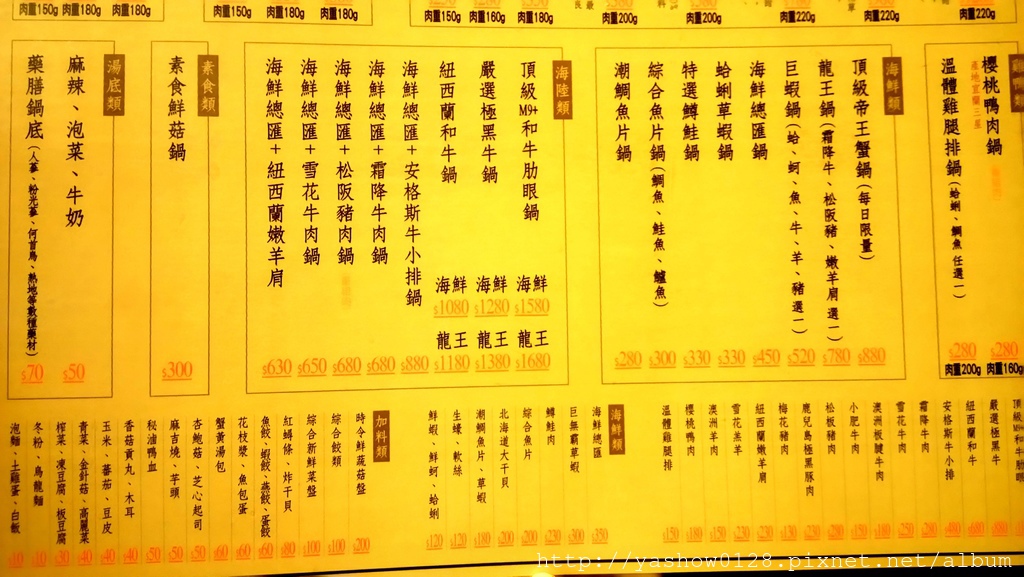 肉重150g 肉重180g 肉重180g
肉重150g 肉重180g 肉重180g
肉重150g 肉重160g 肉重180g
肉重200g
肉重200g
肉重220g
肉重220g
櫻桃鴨肉鍋 $280 肉重160g
產地宜蘭三星
溫體雞腿排鍋(蛤蜊、鯛魚 任選一) $280 肉重200g
海鮮類
頂級帝王蟹鍋(每日限量) $880
龍王鍋(霜降牛、松阪豬、嫩羊肩 選一) $780
巨蝦鍋(蛤、蚵、魚、牛、羊、豬 選一) $520
海鮮總匯鍋 $450
蛤蜊草蝦鍋 $330
特選鱒鮭鍋 $330
綜合魚片鍋(鯛魚、鮭魚、鱸魚) $300
潮鯛魚片鍋 $280
海陸類
頂級M9+和牛肋眼鍋 海鮮 $1580 龍王 $1680
嚴選極黑牛鍋 海鮮 $1280 龍王 $1380
紐西蘭和牛鍋 海鮮 $1080 龍王 $1180
海鮮總匯+安格斯牛小排鍋 $880
海鮮總匯+霜降牛肉鍋 $680
海鮮總匯+松阪豬肉鍋 $680
海鮮總匯+雪花牛肉鍋 $650
海鮮總匯+紐西蘭嫩羊肩 $630
素食類
素食鮮菇鍋 $300
湯底類
麻辣、泡菜、牛奶 $50
藥膳鍋底(人蔘、粉光蔘、何首烏、熟地等數種藥材) $70
嚴選極黑牛
紐西蘭和牛
安格斯牛小排
霜降牛肉
雪花牛肉
澳洲板腱牛肉
小肥牛肉
松板豬肉
鹿兒島極黑豚肉
梅花豬肉
紐西蘭嫩羊肩
雪花羔羊
澳洲羊肉
櫻桃鴨肉
溫體雞腿排
海鮮類
海鮮總匯 $350
巨無霸草蝦 $300
鱒鮭肉
綜合魚片 $200
北海道大干貝 $200
潮鯛魚片、草蝦 $180
生蠔、軟絲 $120
鮮蝦、鮮蚵、蛤蜊 $120
加料類
時令鮮蔬菇盤 $200
綜合餃類 $100
綜合新鮮菜盤 $100
紅蟳條、炸干貝 $80
魚餃、蝦餃、燕餃、蛋餃 $60
花枝漿、魚包蛋 $60
蟹黃湯包 $60
杏鮑菇、芝心起司 $50
麻吉燒、芋頭 $50
秘滷鴨血 $50
香菇貢丸、木耳 $40
玉米、蕃茄、豆皮 $40
青菜、金針菇、高麗菜 $40
榨菜、凍豆腐、板豆腐 $30
冬粉、烏龍麵 $10
泡麵、土雞蛋、白飯 $10
http://yashow0128.pixnet.net/album